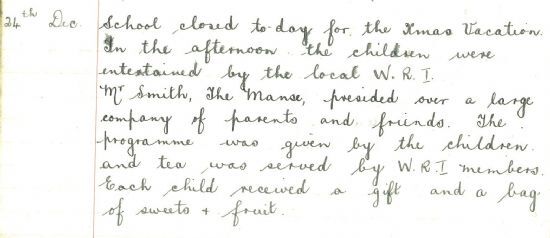 24th Dec. School closed to-day for the Xmas Vacation.
In the afternoon the children were
entertained by the local W.R.I.
Mr Smith, The Manse, presided over a large
company of parents and friends. The
programme was given by the children
and tea was served by W.R.I members.
Each child received a gift and a bag
of sweets + fruit.